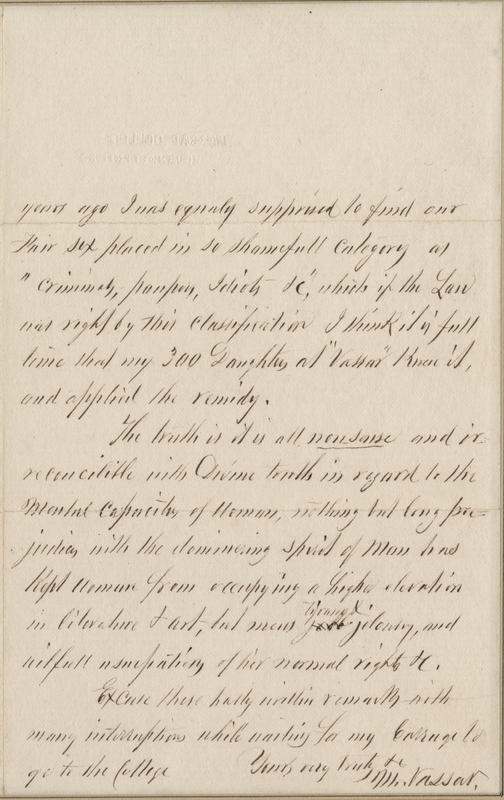 years ago I was equaly supprised to find our
Fair sex placed in so shamefull Category as
"Criminals, paupers, Idiots &c", which if the Law
was right by this classification I think it is full
time that my 300 Daughters at "Vassar" Knew it,
and applied the remidy.
The truth is it is all nonsense and ir-
reconcilible with Divine truth in regard to the
Mental Capacity of Woman, nothing but long pre=
judices with the dominering spirit of Man has
Kept Woman from occupying a higher elevation
in literature & art, but mens tyranyd jelousy, and
willfull usurpations of her normal rights &c.
Excuse these hasty written remarks with
many interruptions while waiting for my Carrage to
go to the College Yours very truly &c
M. Vassar.